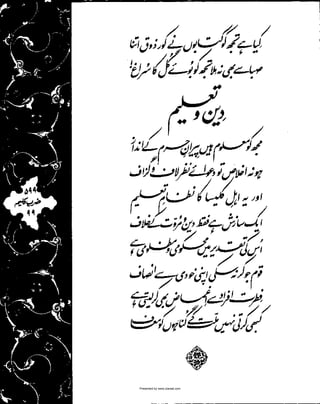 کیا ہے تجھ کو کتابوں نے کور ذوق اتنا
صبا سے بھی نہ ملا تجھ کو بوئے گل کا سراغ
دین و تعلیم
مجھ کو معلوم ہیں پیرانِ حرم کے انداز
ہو نہ اخلاص تو دعوائے نظر لاف و گزاف
اور یہ اہلِ کلیسا کا نظامِ تعلیم
ایک سازش ہے فقط دین و مروت کے خلاف
اس کی تقدیر میں محکومی و مظلومی ہے
قوم جو کر نہ سکی اپنی خودی سے انصاف
فطرت افراد سے اغماض بھی کر لیتی ہے
کبھی کرتی نہیں ملت کے گناہوں کو معاف
۵۹۹
ضرب کلیم
۹۹
Presented by www.ziaraat.com